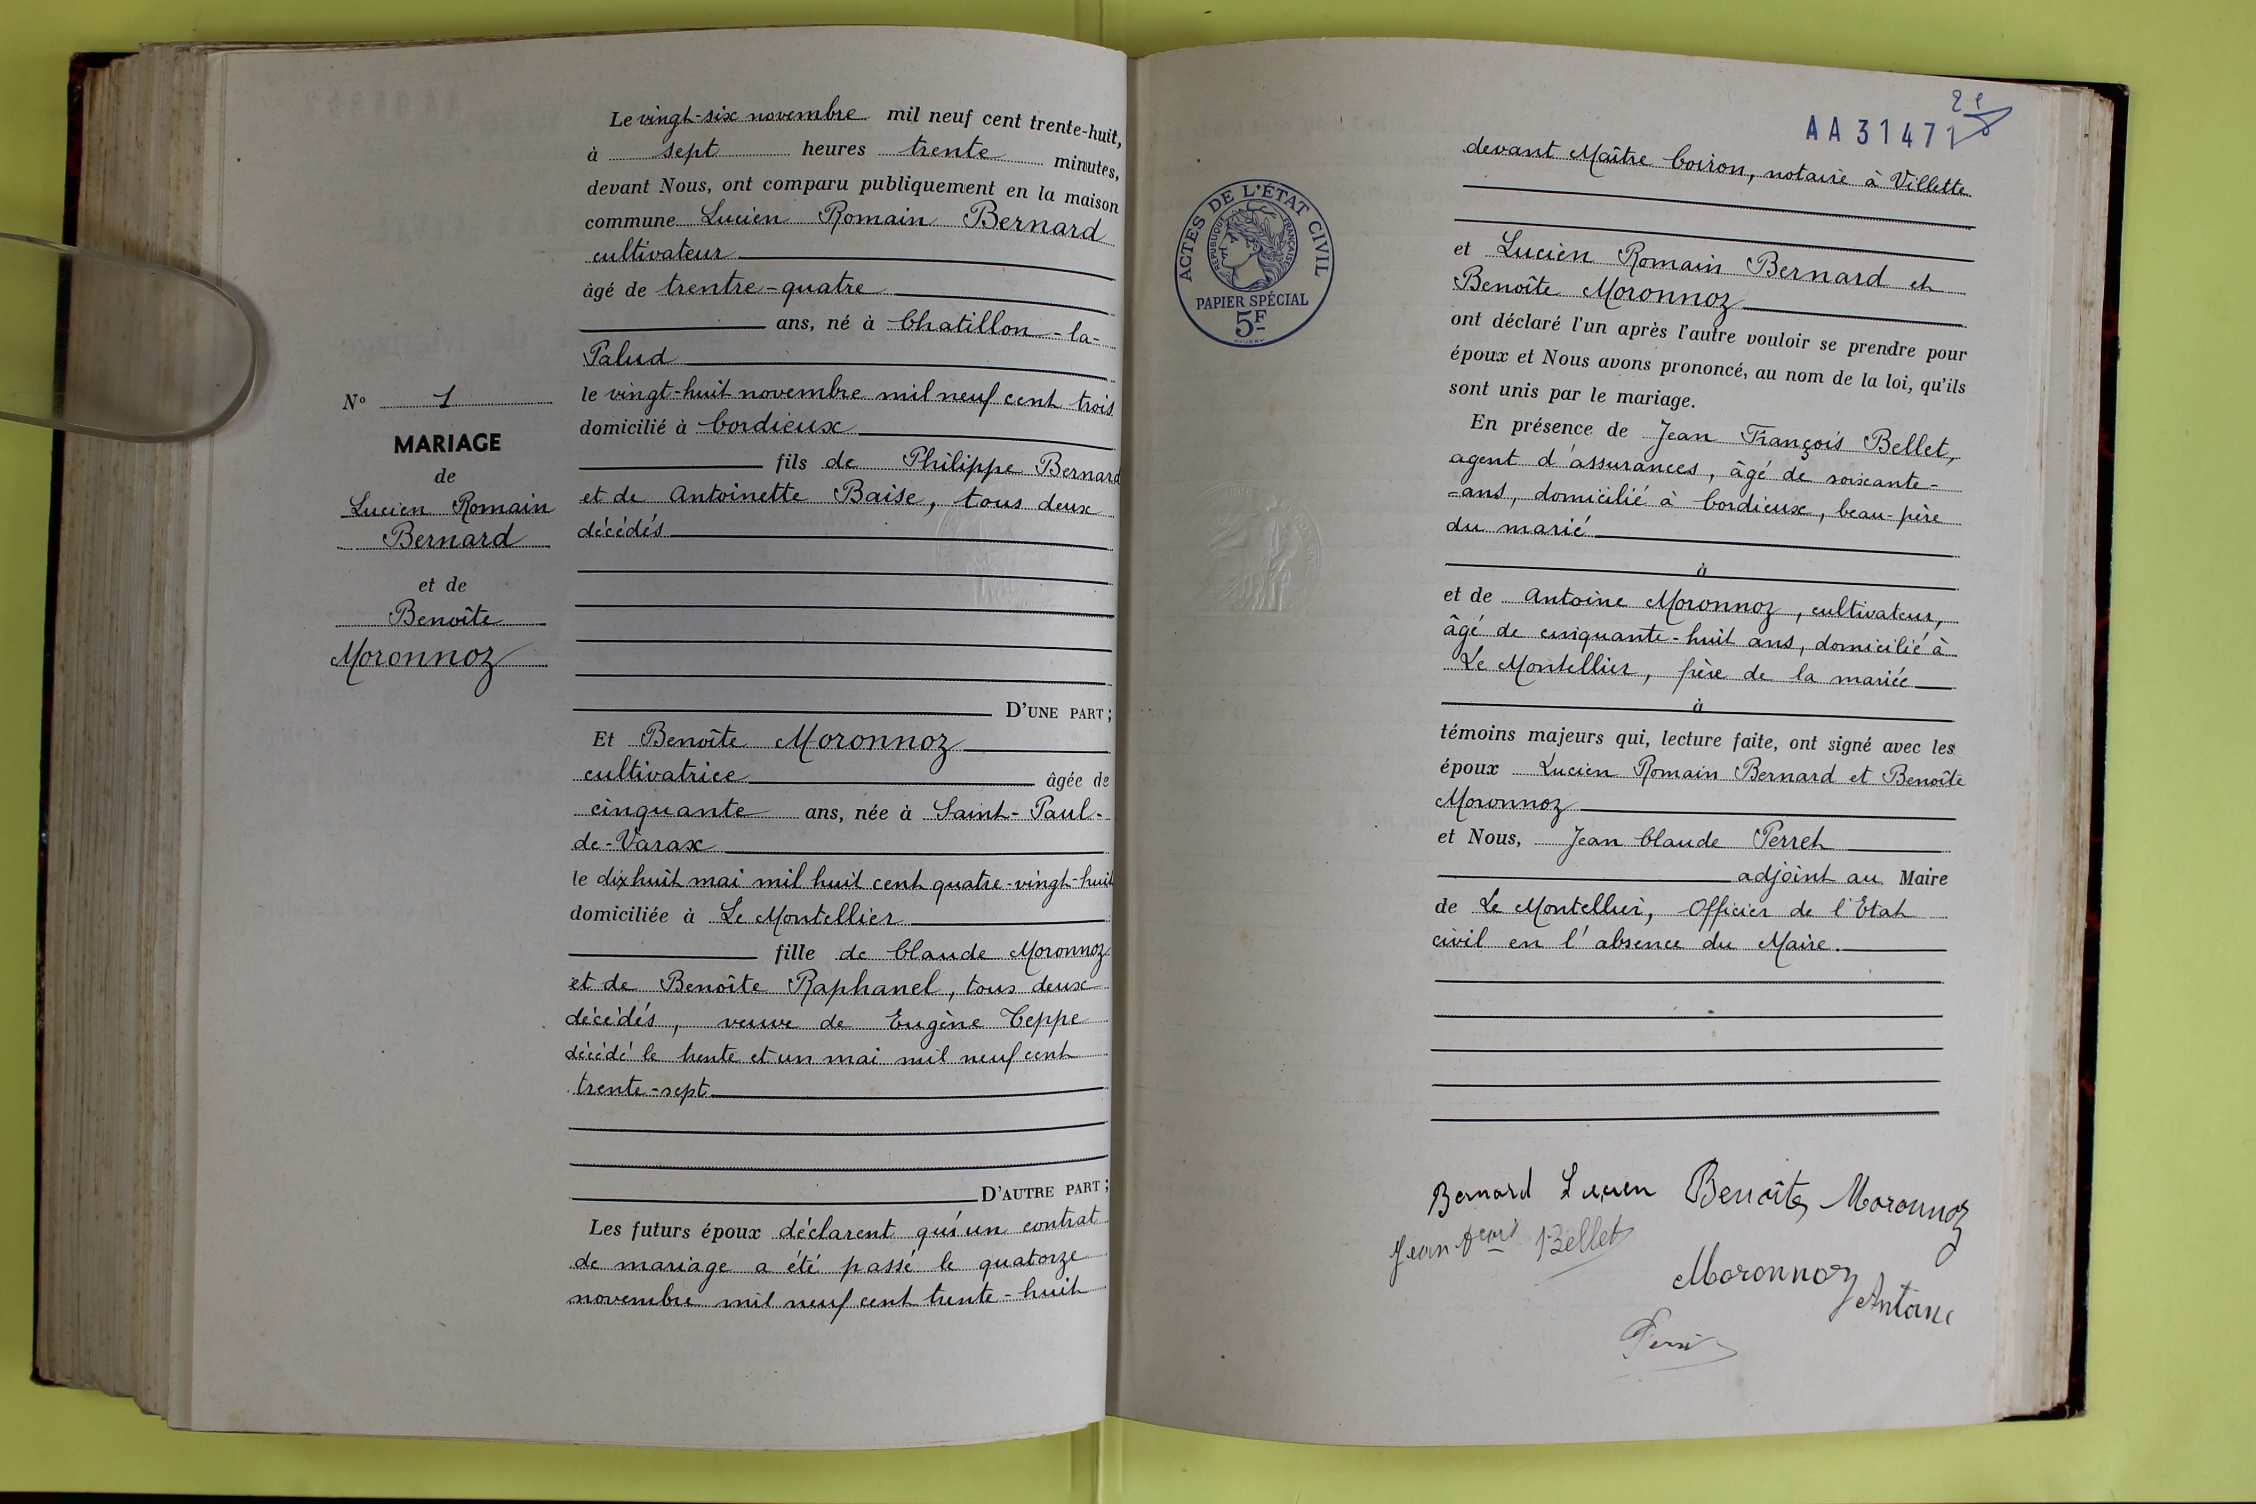 Le vingt-six novembre mil neuf cent trente-huit,
à sept heures trente minutes,
devant Nous, ont comparu publiquement en la maison
commune Lucien Romain Bernard
cultivateur
âgé de trentre-quatre
ans, né à Chatillon-la-
Palud
le vingt-huit novembre mil neuf cent trois
domicilié à Cordieux
fils de Philippe Bernard
et de Antoinette Baise, tous deux
décédés
D'UNE PART ;
N° 1
MARIAGE
de
Lucien Romain
Bernard
et de
Benoîte
Moronnoz
Et Benoîte Moronnoz
cultivatrice âgée de
cinquante ans, née à Saint-Paul-
de-Varax
le dix huit mai mil huit cent quatre-vingt-huit
domiciliée à Le Montellier
fille de Claude Moronnoz
et de Benoîte Raphanel, tous deux
décédés, veuve de Eugène Teppe
décédé le trente et un mai mil neuf cent
trente-sept
D'AUTRE PART ;
Les futurs époux déclarent qu'un contrat
de mariage a été passé le quatorze
novembre mil neuf cent trente-huit
AA 31471
ACTES DE L'ÉTAT CIVIL
RÉPUBLIQUE FRANÇAISE
PAPIER SPÉCIAL
5F
devant Maître Coiron, notaire à Villette
et Lucien Romain Bernard et
Benoîte Moronnoz
ont déclaré l'un après l'autre vouloir se prendre pour
époux et Nous avons prononcé, au nom de la loi, qu'ils
sont unis par le mariage.
En présence de Jean François Bellet,
agent d'assurances, âgé de soixante-
-ans, domicilié à Cordieux, beau-père
du marié
à
et de Antoine Moronnoz, cultivateur,
âgé de cinquante-huit ans, domicilié à
Le Montellier, père de la mariée
à
témoins majeurs qui, lecture faite, ont signé avec les
époux Lucien Romain Bernard et Benoîte
Moronnoz
et Nous, Jean Claude Perret
adjoint au Maire
de Le Montellier, Officier de l'Etat
civil en l'absence du Maire.
Bernard Lucien Benoîte Moronnoz
Jean Bellet
Moronnoz
Antoine